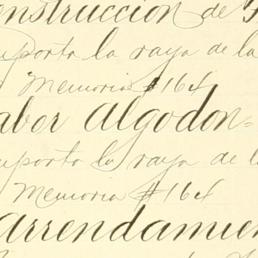 onstruccion de
mporta la raya de la
Memoria #164
abor Algodon=
mporta la raya de la
Memoria #164
Arrendamien